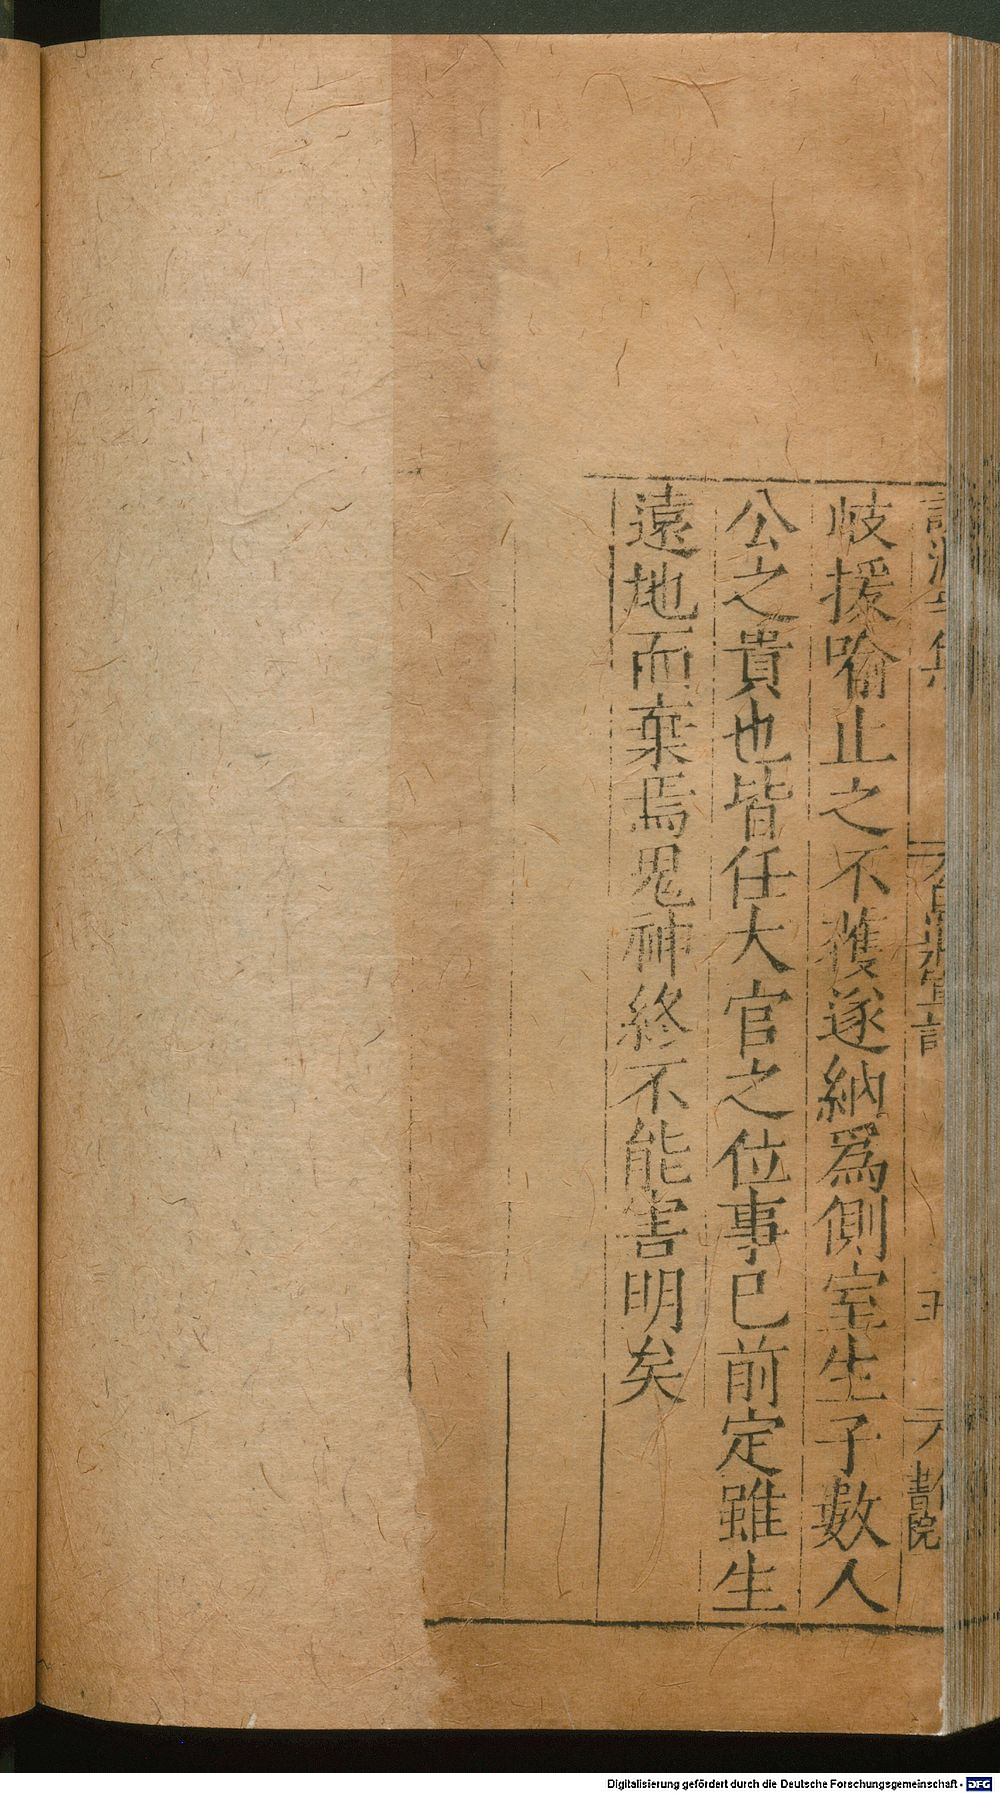 岐援喻止之不獲遂納爲側室生子數人
公之貴也皆任大官之位事已前定雖生
遠地而棄焉鬼神終不能害明矣
書院
Digitalisierung gefördert durch die Deutsche Forschungsgemeinschaft - DFG